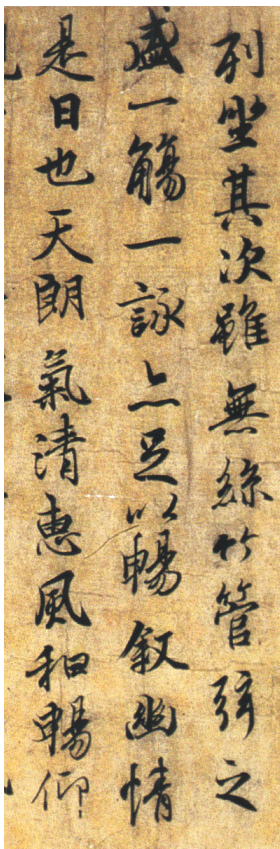 列坐其次雖無絲竹管弦之
盛一觴一詠亦足以暢叙幽情
是日也天朗氣清惠風和暢仰